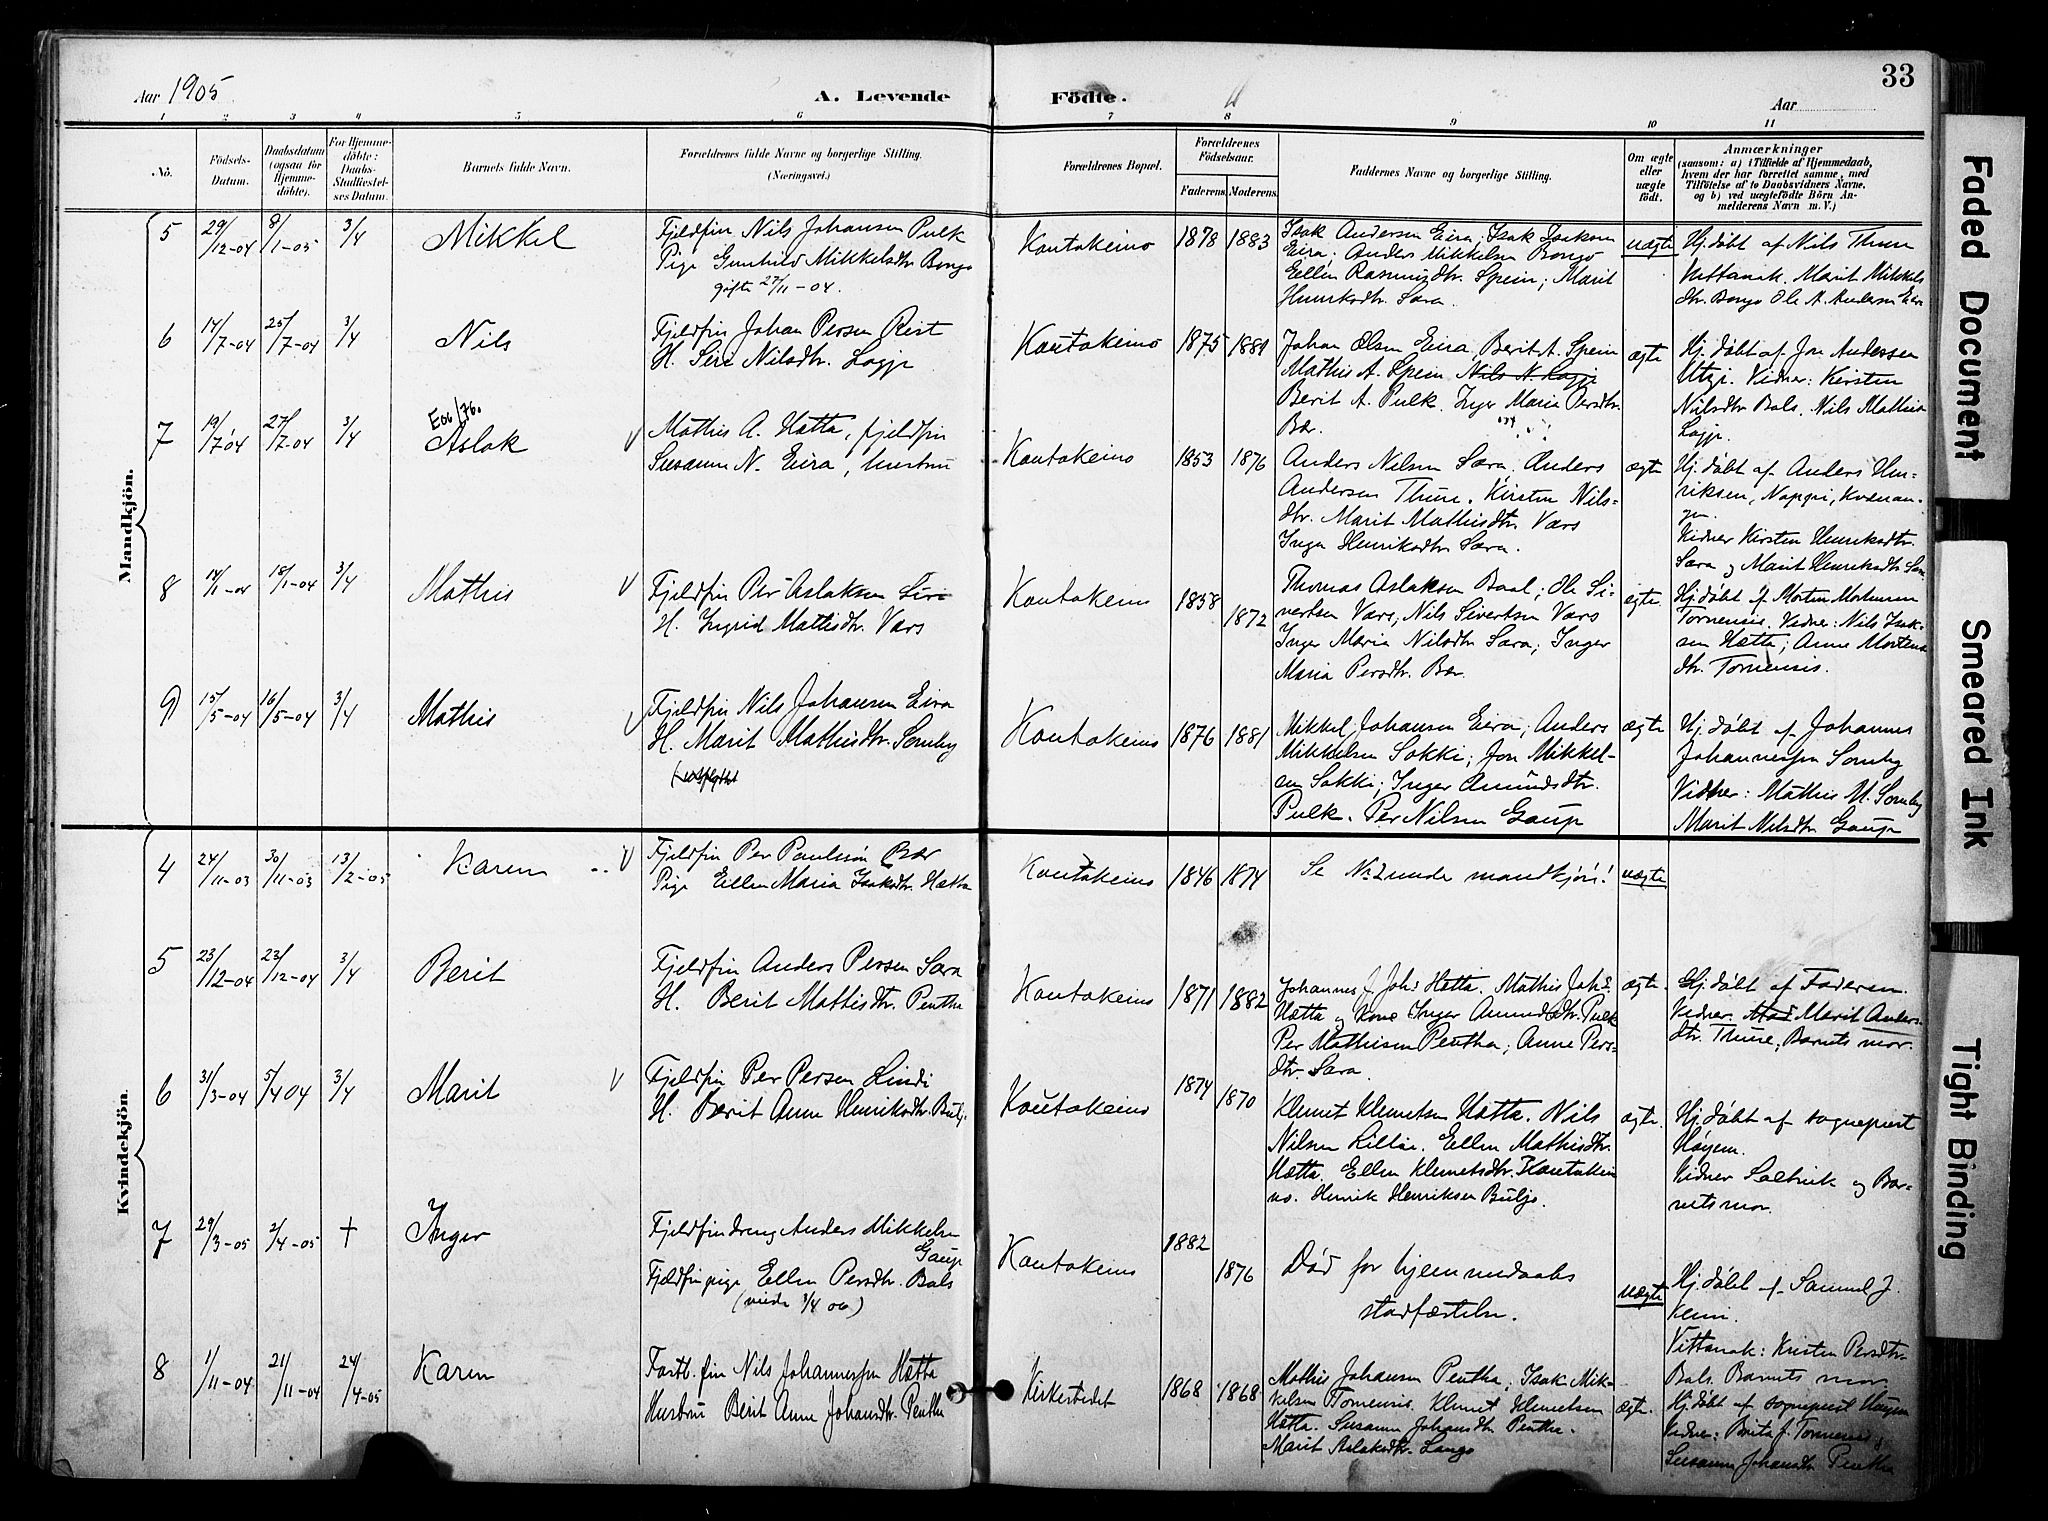 33
Aar 1905
A. Levende
Födte.
Aar
1 2 3 4 5 6 7 8 9 10 11
No.
Födsels-
Datum.
Daabsdatum
(ogsaa for
Hjemme-
döbte).
For Hjemme-
döbte:
Daabs-
Stadfæstel-
ses Datum.
Barnets fulde Navn.
Forældrenes fulde Navne og borgerlige Stilling.
(Næringsvei.)
Forældrenes Bopæl.
Forældrenes
Födselsaar.
Faderens. Moderens.
Faddernes Navne og borgerlige Stilling.
Om ægte
eller
uægte
födt.
Anmærkninger
(saasom: a) i Tilfælde af Hjemmedaab,
hvem der har forrettet samme, med
Tilföielse af to Daabsvidners Navne,
og b) ved uægtefödte Börn An-
melderens Navn m. V.)
Mandkjön.
5 29/12-04 8/1-05 3/4 Mikkel
Fjeldfin Nils Johansen Pulk
Pige Gunhild Mikkelsdtr Bongo
gifte 27/11-04.
Koutokeino 1878 1883
Isak Andersen Eira, Isak Isaksen
Eira; Anders Mikkelsen Bongo
Ellen Rasmusdtr. Spein; Marit
Henriksdtr. Sara.
uægte
Hj. døbt af Nils Thure
Vittanak. Marit Mikkels
dtr. Bongo Ole A. Andersen Eira
6 14/7-04 25/7-04 3/4 Nils
Fjeldfin Johan Persen Rist
H. Siri Nilsdtr. Logje
Koutokeino 1875 1881
Johan Olsen Eira, Berit A. Spein
Mathis A. Spein Nils N. Logje
Berit A. Pulk. Inger Maria Persdtr.
Bær.
ægte
Hj. døbt af Jon Andersen
Utsi. Vidner: Kirsten
Nilsdtr Bals. Nils Mathisen
Logje.
7 19/7-04 27/7-04 3/4 Aslak
Mathis A. Hætta, fjeldfin
Susanne N. Eira, hustru
Koutokeino 1853 1876
Anders Nilsen Sara, Anders
Andersen Thure. Kirsten Nils-
dtr. Marit Mathisdtr. Vars
Inga Henriksdtr Sara.
ægte
Hj. døbt af Anders Hen-
riksen, Kvænan-
gen.
Vidner Kirsten Henriksdtr.
Sara og Marit Henriksdtr Sara
8 14/1-04 18/1-04 3/4 Mathis
Fjeldfin Per Aslaksen Siri
H. Ingrid Mattisdtr. Vars
Koutokeino 1858 1872
Thomas Aslaksen Baal; Ole Si-
vertsen Vars, Nils Sivertsen Vars
Inger Maria Nilsdtr Sara; Inger
Maria Persdtr. Bær.
ægte.
Hj. døbt af Morten Mortensen
Tornensis. Vidner: Nils Isak-
sen Hætta; Anne Mortens
dtr. Tornensis.
9 15/5-04 16/5-04 3/4 Mathis
Fjeldfin Nils Johansen Eira
H. Marit Mathisdtr. Somby
Koutokeino 1876 1881
Mikkel Johansen Eira; Anders
Mikkelsen Sokki; Jon Mikkel-
sen Sokki; Inger Amundsdtr.
Pulk. Per Nilsen Gaup
ægte
Hj. døbt af Johannes
Johannessen Somby
Vidner: Mathis M. Somby
Marit Nilsdtr Gaup
Kvindekjön.
4 24/11-03 30/11-03 13/2-05 Karen
Fjeldfin Per Paulsøn Bær
Pige Ellen Maria Isaksdtr. Hætta
Koutokeino 1846 1874
Se No 2 under mandkjøn!
uægte
5 23/12-04 23/12-04 3/4 Berit
Fjeldfin Anders Persen Sara
H. Berit Mattisdtr. Pentha
Koutokeino 1871 1882
Johannes J. Johs Hætta. Mathis Johs.
Hætta og Kone Inger Amundsdtr. Pulk
Per Mathisen Pentha; Anne Pers-
dtr. Sara.
ægte.
Hj. døbt af Faderen.
Vidner. Marit Anders-
dtr. Thure, Barnets mor.
6 31/3-04 5/4 04 3/4 Marit
Fjeldfin Per Persen Lindi
H. Berit Anne Henriksdtr. Buljo.
Koutokeino 1874 1870
Klemet Klemetsen Hætta. Nils
Nilsen Ellen Mathisdtr.
Hætta. Ellen Klemetsdtr. Koutokei
no. Henrik Henriksen Buljo.
ægte.
Hj. døbt af sognepræst
Høyem.
Vidner og Bar-
nets mor.
7 29/3-05 2/4-05 + Inger
Fjeldfindreng Anders Mikkelsen
Gaup
Fjeldfinpige Ellen Persdtr. Bals
(viede 3/4 06)
Koutokeino 1882 1876
Død før hjemmedaabs
stadfæstelse.
uægte
Hj. døbt af Samuel J.
Klemi.
Vittanak: Kristen Persdtr.
Bals. Barnets mor.
8 1/11-04 21/11-04 24/4-05 Karen
Fastb. fin Nils Johannessen Hætta
Hustru Berit Anne Johansdtr. Pentha
Kirkestedet 1868 1868
Mathis Johansen Pentha, Isak Mik-
kelsen Tornensis. Klemet Klemetsen
Hætta. Susanne Johansdtr Pentha.
Marit Aslaksdtr. Lango
ægte.
Hj. døbt af sognepræst Høyem
Vidner: Brita J. Tornensis,
Susanne Johansdtr Pentha
Faded Document
Smeared Ink
Tight Binding